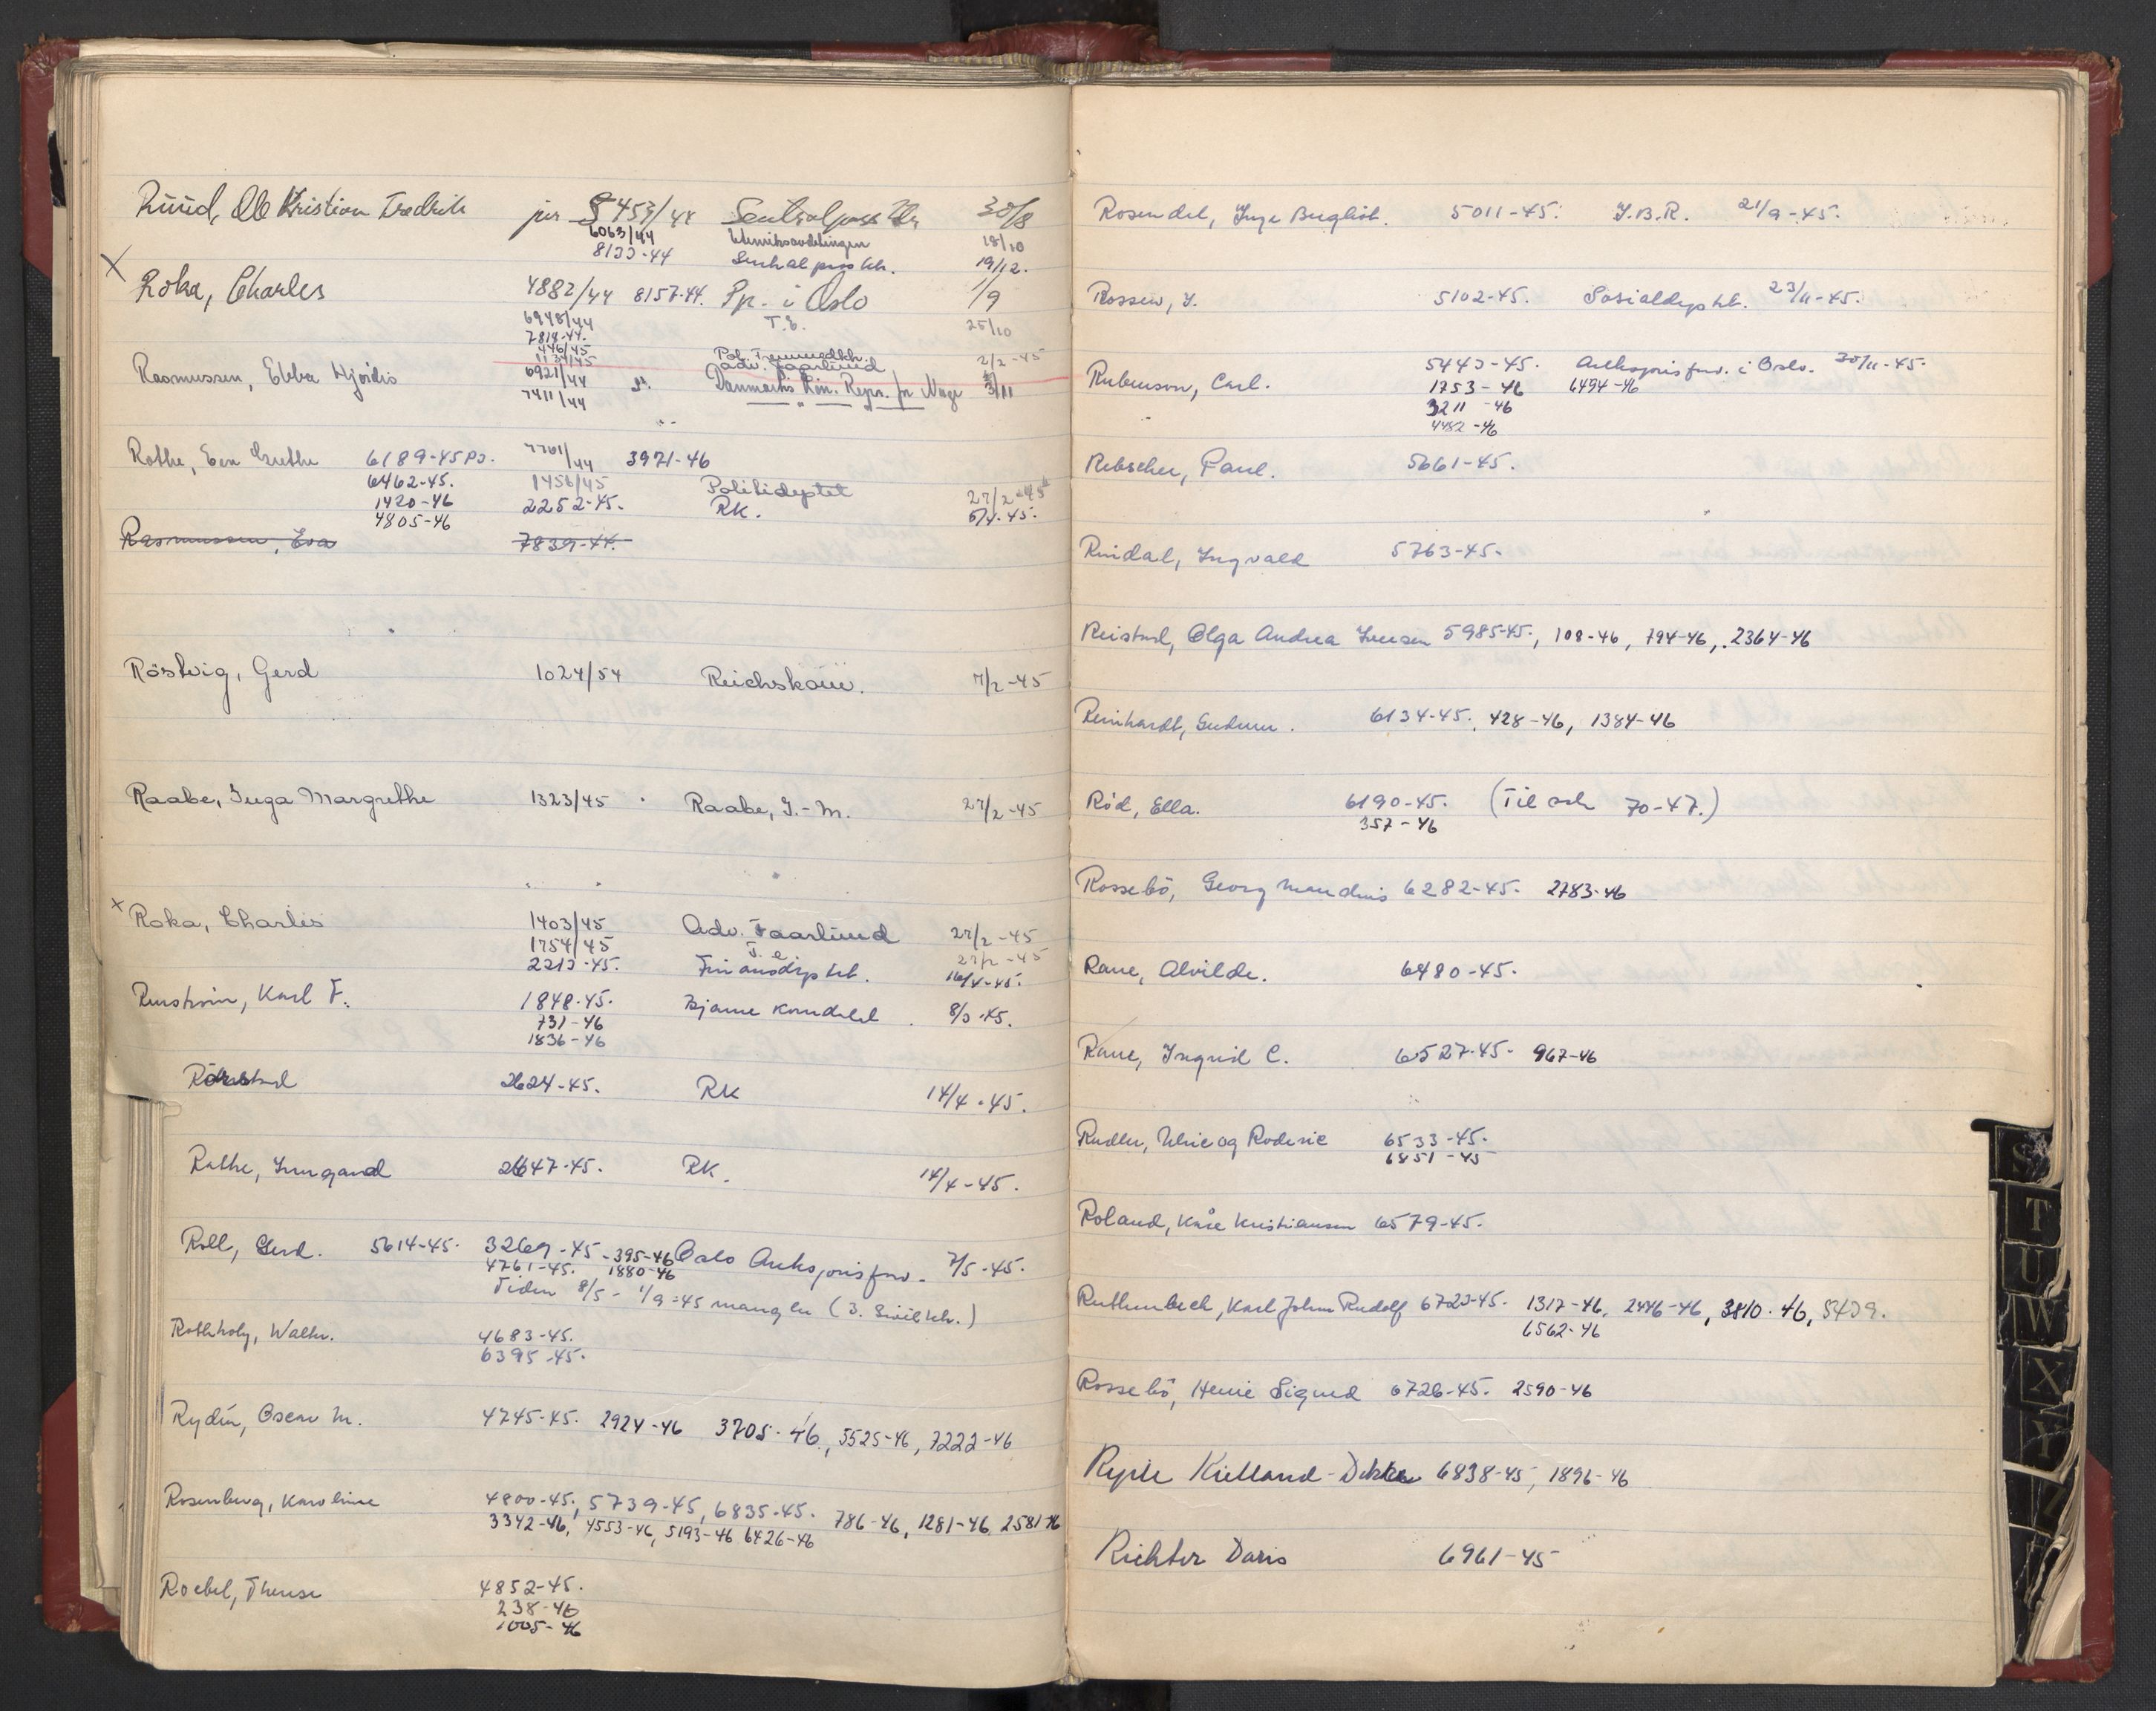 Ruud, Ole Kristian Fredrik jnr 5453/44 Sentralpasskk. 30/8
6063/44 Utenriksavdelingen 18/10
8133-44 Sentralpasskk. 19/12.
X Roka, Charles 4882/44 8157-44. Pp. i Oslo 1/9
6948/44 T.E. 25/10
7814-44.
446/45 Pol. Fremmedkk. 2/2-45
1134/45 adv. Faarlund
Rasmussen, Ebba Hjördis 6921/44 Danmarks Kon. Repr. for Norge 3/11
7411/44
Rothe, Eva Grethe 6189-45 7701/44 3971-46
6462-45. 1456/45 Politideptet 27/2-45
1420-46 2252-45. RK. 5/4-45.
4805-46
Rasmussen, Eva 7839-44.
Röstvig, Gerd 1024/54 Reichskom. 7/2-45
Raabe, Inga Margrethe 1323/45 Raabe, I.-M. 27/2-45
x Roka, Charles 1403/45 Adv. Faarlund 27/2-45
1754/45 T.E. 27/2-45
2213-45. Finansdeptet. 16/4-45.
Karl F. 1848-45. Bjarne 8/3-45.
731-46
1836-46
2624-45. RK 14/4-45.
Rothe, Irmgard 2647-45. RK. 14/4-45.
Roll, Gerd. 5614-45. 3269-45 - 395-46 Oslo 7/5-45.
4761-45. 1880-46
Tiden 8/5 - 1/9-45 mangler (3. Sivilkk.)
Rothholz, Walter. 4683-45.
6395-45.
Rydin, Oscar M. 4745-45. 2924-46 3705-46, 5525-46, 7222-46
Rosenberg, Karoline 4800-45, 5739-45, 6835-45. 786-46, 1281-46, 2581-46
3342-46, 4553-46, 5193-46 6426-46
Roebel, Therese 4852-45.
238-46
1005-46
Rosendel, Inge 5011-45. I.B.R. 21/9-45.
Rossen, I. 5102-45. Sosialdeptet. 23/11-45.
Rubenson, Carl. 5443-45. i Oslo. 30/11-45.
1753-46 6494-46
3211-46
4482-46
Rebscher, Paul. 5661-45.
Rindal, Ingvald 5763-45.
Reistad, Olga Andrea Jensen 5985-45., 108-46, 794-46, 2364-46
Reinhardt, Gudrun. 6134-45. 428-46, 1384-46
Röd, Ella. 6190-45. (Til och 70-47.)
357-46
Rossebö, Georg 6282-45. 2783-46
Rane, Alvilde. 6480-45.
Rane, Ingrid C. 6527-45. 967-46
6533-45.
6851-45
Roland, Kåre Kristiansen 6579-45.
Ruthenbeck, Karl Johan Rudolf 6723-45. 1317-46, 2446-46, 3810-46, 5439.
6562-46
Rossebö, Sigurd 6726-45. 2590-46
Kielland 6838-45, 1896-46
Richter Doris 6961-45
S
T
U
W
X
Y
Z